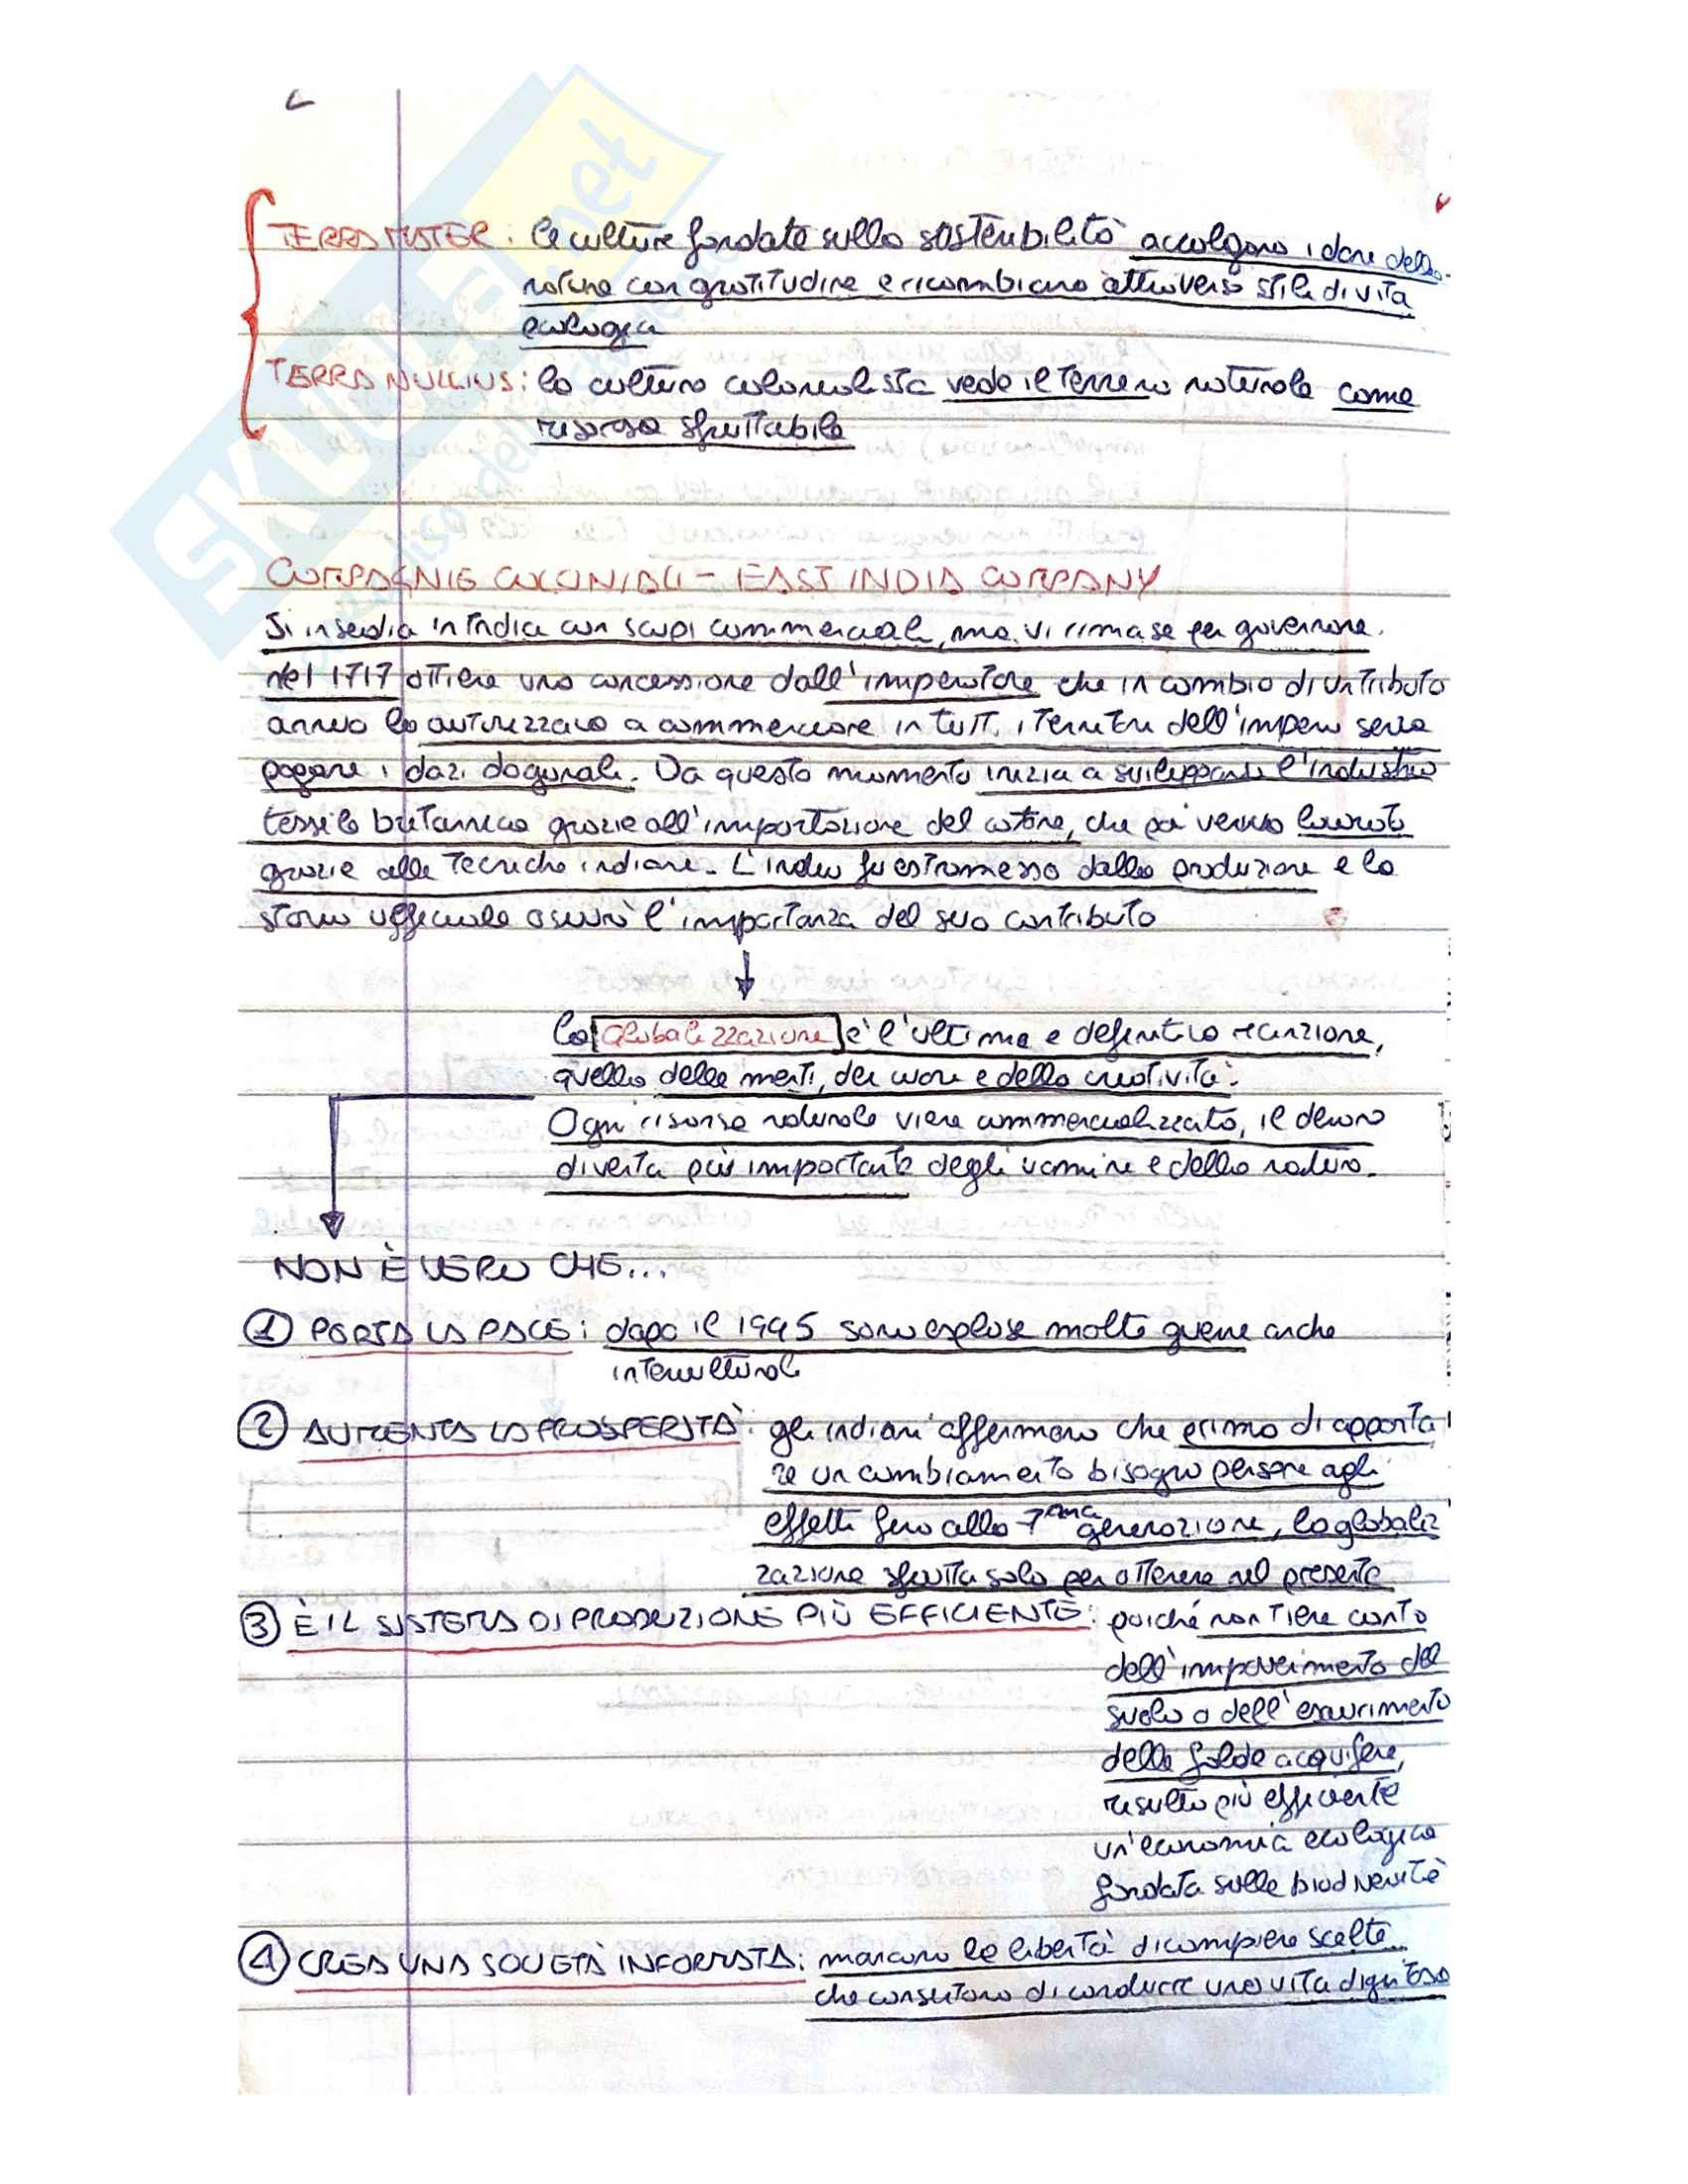 TERRA MATER: le culture fondate sulla sostenibilità accolgono i doni della
natura con gratitudine e ricambiano attraverso stili di vita
ecologici
TERRA NULLIUS: la cultura colonialista vede il terreno naturale come
risorsa sfruttabile
COMPAGNIE COLONIALI - EAST INDIA COMPANY
Si insedia in India con scopi commerciali, ma vi rimase per governare.
nel 1717 ottiene una concessione dall'imperatore che in cambio di un tributo
annuo la autorizzava a commerciare in tutti i territori dell'impero senza
pagare i dazi doganali. Da questo momento inizia a svilupparsi l'industria
tessile britannica grazie all'importazione del cotone, che poi veniva lavorato
grazie alle tecniche indiane. L'India fu estromessa dalla produzione e la
storia ufficiale oscurò l'importanza del suo contributo
la globalizzazione è l'ultima e definitiva recinzione,
quella delle menti, dei cuori e della creatività.
Ogni risorsa naturale viene commercializzata, il denaro
diventa più importante degli uomini e della natura.
NON È VERO CHE...
1 PORTA LA PACE: dopo il 1995 sono esplose molte guerre anche
interculturali
2 AUMENTA LA PROSPERITÀ: gli indiani affermano che prima di apporta
re un cambiamento bisogna pensare agli
effetti fino alla 7ima generazione, la globaliz
zazione sfrutta solo per ottenere nel presente
3 È IL SISTEMA DI PRODUZIONE PIÙ EFFICIENTE: poiché non tiene conto
dell'impoverimento del
suolo o dell'esaurimento
delle falde acquifere,
risulta più efficiente
un'economia ecologica
fondata sulla biodiversità
4 CREA UNA SOCIETÀ INFORMATA: mancano le libertà di compiere scelte
che consentano di condurre una vita dignitosa
SKUOLA.net